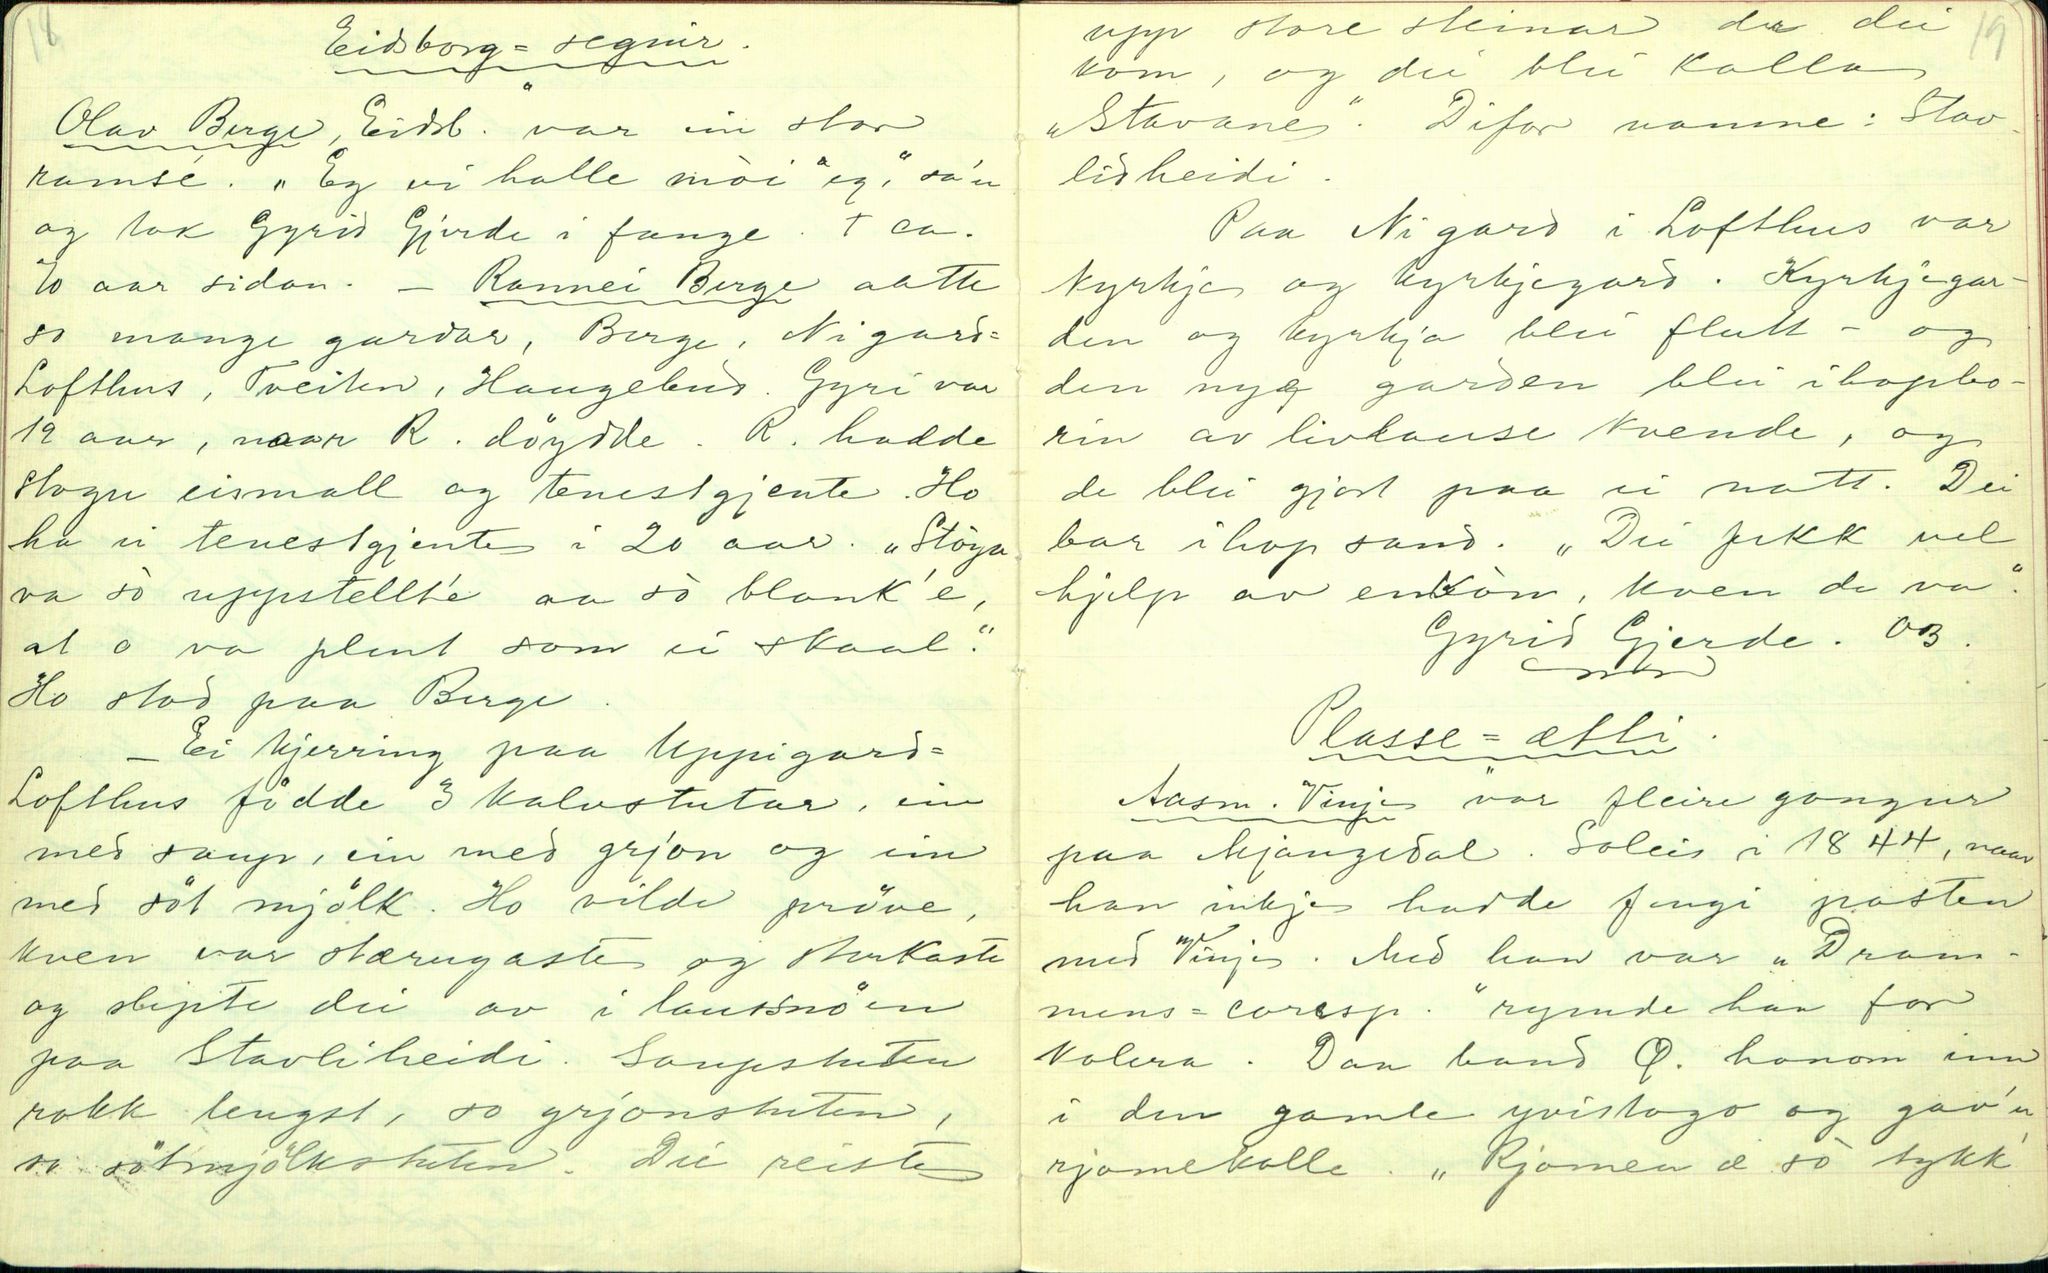 18
Eidsborg = segnir.
Olav Berge, Eidsb. var ein stor
ramsé. „Eg vi halle mòi æg," sa'n
og tok Gyrid Gjerde i fange. † ca.
70 aar sidan. — Rannei Berge aatte
so mange gardar, Berge, Nigard=
Lofthus, Tveiten, Haugebud. Gyri var
12 aar, naar R. döydde. R. hadde
stogu eismall og tenestgjente. Ho
ha ei tenestgjente i 20 aar. „Stöga
va sò uppstellt'e aa sò blank'e,
at o va plent som ei skaal."
Ho stod paa Berge.
— Ei kjerring paa Uppigard=
Lofthus födde 3 kalvstutar, ein
med saup, ein med grjon og ein
med söt mjölk. Ho vilde pröve,
kven var stærugaste og sterkaste
og slepte dei av i laussnöen
paa Stavliheidi. Saupstuten
rakk lengst, so grjonstuten,
so sötmjölkstuten. Dei reiste
19
upp store steinar der dei
kom, og dei blei kalla
„Stavane". Difor namne: Stav-
lidheidi.
Paa Nigard i Lofthus var
kyrkje og kyrkjegard. Kyrkjegar-
den og kyrkja blei flutt – og
den nye garden blei ihopbo-
rin av livlause kvende, og
de blei gjort paa ei natt. Dei
bar ihop sand. „Dei fekk vel
hjelp av enkòn, kven de va".
Gyrid Gjerde. OB.
Plasse = ætti.
Aasm. Vinje var fleire gongur
paa Mjaugedal. Soleis i 1844, naar
han inkje hadde fengi posten
med Vinje. Med han var „Dram-
mens = coresp." rymde han for
kolera. Daa baud Ø. honom inn
i den gamle yvistogo og gav'n
rjomekolle. „Rjomen æ sò tykk'